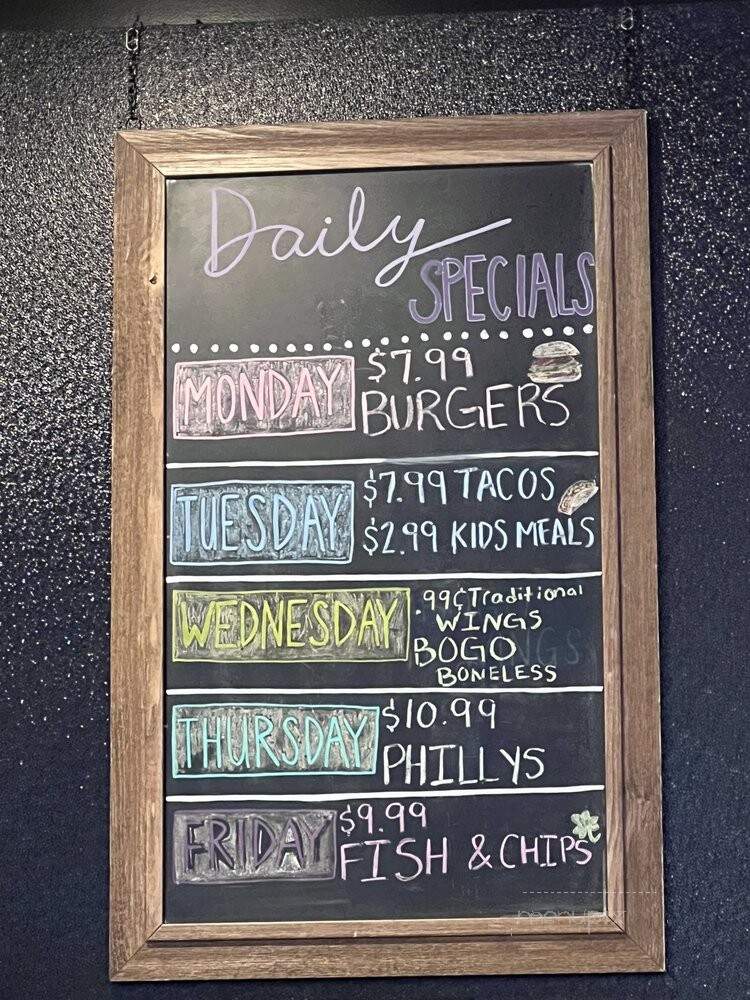 Daily
SPECIALS
MONDAY
$7.99
BURGERS
TUESDAY
$7.99 TACOS
$2.99 KIDS MEALS
WEDNESDAY
.99¢ Traditional
WINGS
BOGO
BONELESS
THURSDAY
$10.99
PHILLYS
FRIDAY
$9.99
FISH & CHIPS